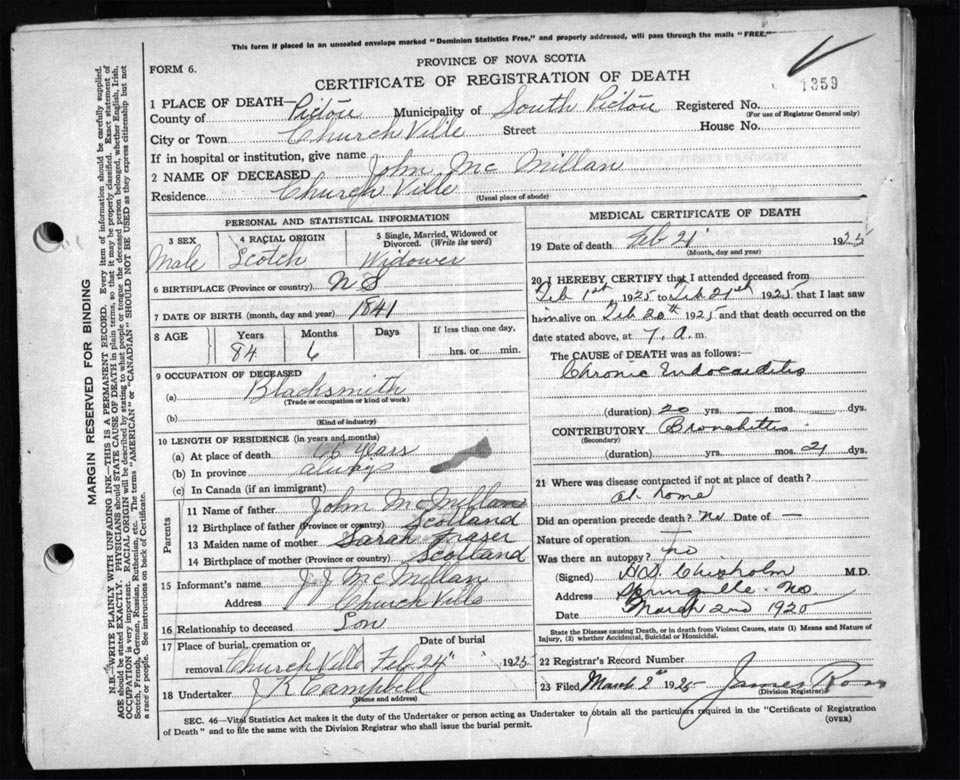 This form if placed in an unsealed envelope marked "Dominion Statistics Free," and property addressed, will pass through the mails "FREE."
PROVINCE OF NOVA SCOTIA
FORM 6.
CERTIFICATE OF REGISTRATION OF DEATH
1359
1 PLACE OF DEATH—
County of Pictou Municipality of South Pictou Registered No.
(For use of Registrar General only)
City or Town Church Ville Street House No.
If in hospital or institution, give name
2 NAME OF DECEASED John Mc Millan
Residence Church Ville
(Usual place of abode)
PERSONAL AND STATISTICAL INFORMATION
3 SEX 4 RACIAL ORIGIN 5 Single, Married, Widowed or Divorced. (Write the word)
Male Scotch Widower
6 BIRTHPLACE (Province or country) N S
7 DATE OF BIRTH (month, day and year) 1841
8 AGE Years Months Days If less than one day,
84 6 hrs. or min.
9 OCCUPATION OF DECEASED
(a) Blacksmith
(Trade or occupation or kind of work)
(b)
(Kind of industry)
10 LENGTH OF RESIDENCE (in years and months)
(a) At place of death years
(b) In province always
(c) In Canada (if an immigrant)
Parents
11 Name of father John McMillan
12 Birthplace of father (Province or country) Scotland
13 Maiden name of mother Sarah Fraser
14 Birthplace of mother (Province or country) Scotland
15 Informant's name J J McMillan
Address Church Ville
16 Relationship to deceased Son
17 Place of burial, cremation or removal Date of burial
Church Ville Feb 24" 1925
18 Undertaker J K Campbell
(Name and address)
MEDICAL CERTIFICATE OF DEATH
19 Date of death Feb 21 1925
(Month, day and year)
20 I HEREBY CERTIFY that I attended deceased from
Feb 1st 1925 to Feb 21st 1925 that I last saw
him alive on Feb 20th 1925 and that death occurred on the
date stated above, at 7. A. m.
The CAUSE OF DEATH was as follows:—
Chronic Endocarditis
(duration) 20 yrs. — mos. — dys.
CONTRIBUTORY Bronchitis
(Secondary)
(duration) yrs. mos. 21 dys.
21 Where was disease contracted if not at place of death?
at home
Did an operation precede death? No Date of —
Nature of operation —
Was there an autopsy? no
(Signed) Chisholm M.D.
Address Springville
Date March 2nd 1925
State the Disease causing Death, or in death from Violent Causes, state (1) Means and Nature of
Injury, (2) whether Accidental, Suicidal or Homicidal.
22 Registrar's Record Number
23 Filed March 2nd 1925 James Ross
(Division Registrar)
SEC. 46—Vital Statistics Act makes it the duty of the Undertaker or person acting as Undertaker to obtain all the particulars required in the "Certificate of Registration
of Death" and to file the same with the Division Registrar who shall issue the burial permit. (OVER)
MARGIN RESERVED FOR BINDING
N.B.—WRITE PLAINLY WITH UNFADING INK—THIS IS A PERMANENT RECORD. Every item of information should be carefully supplied.
AGE should be stated EXACTLY. PHYSICIANS should STATE CAUSE OF DEATH in plain terms, so that it may be properly classified. Exact statement of
OCCUPATION is very important. RACIAL ORIGIN will be described by stating to what people or tongue the deceased person belonged, whether English, Irish,
Scotch, French, German, Russian, Ruthenian, etc. The terms "AMERICAN" or "CANADIAN" SHOULD NOT BE USED as they express citizenship but not
a race or people. See instructions on back of Certificate.